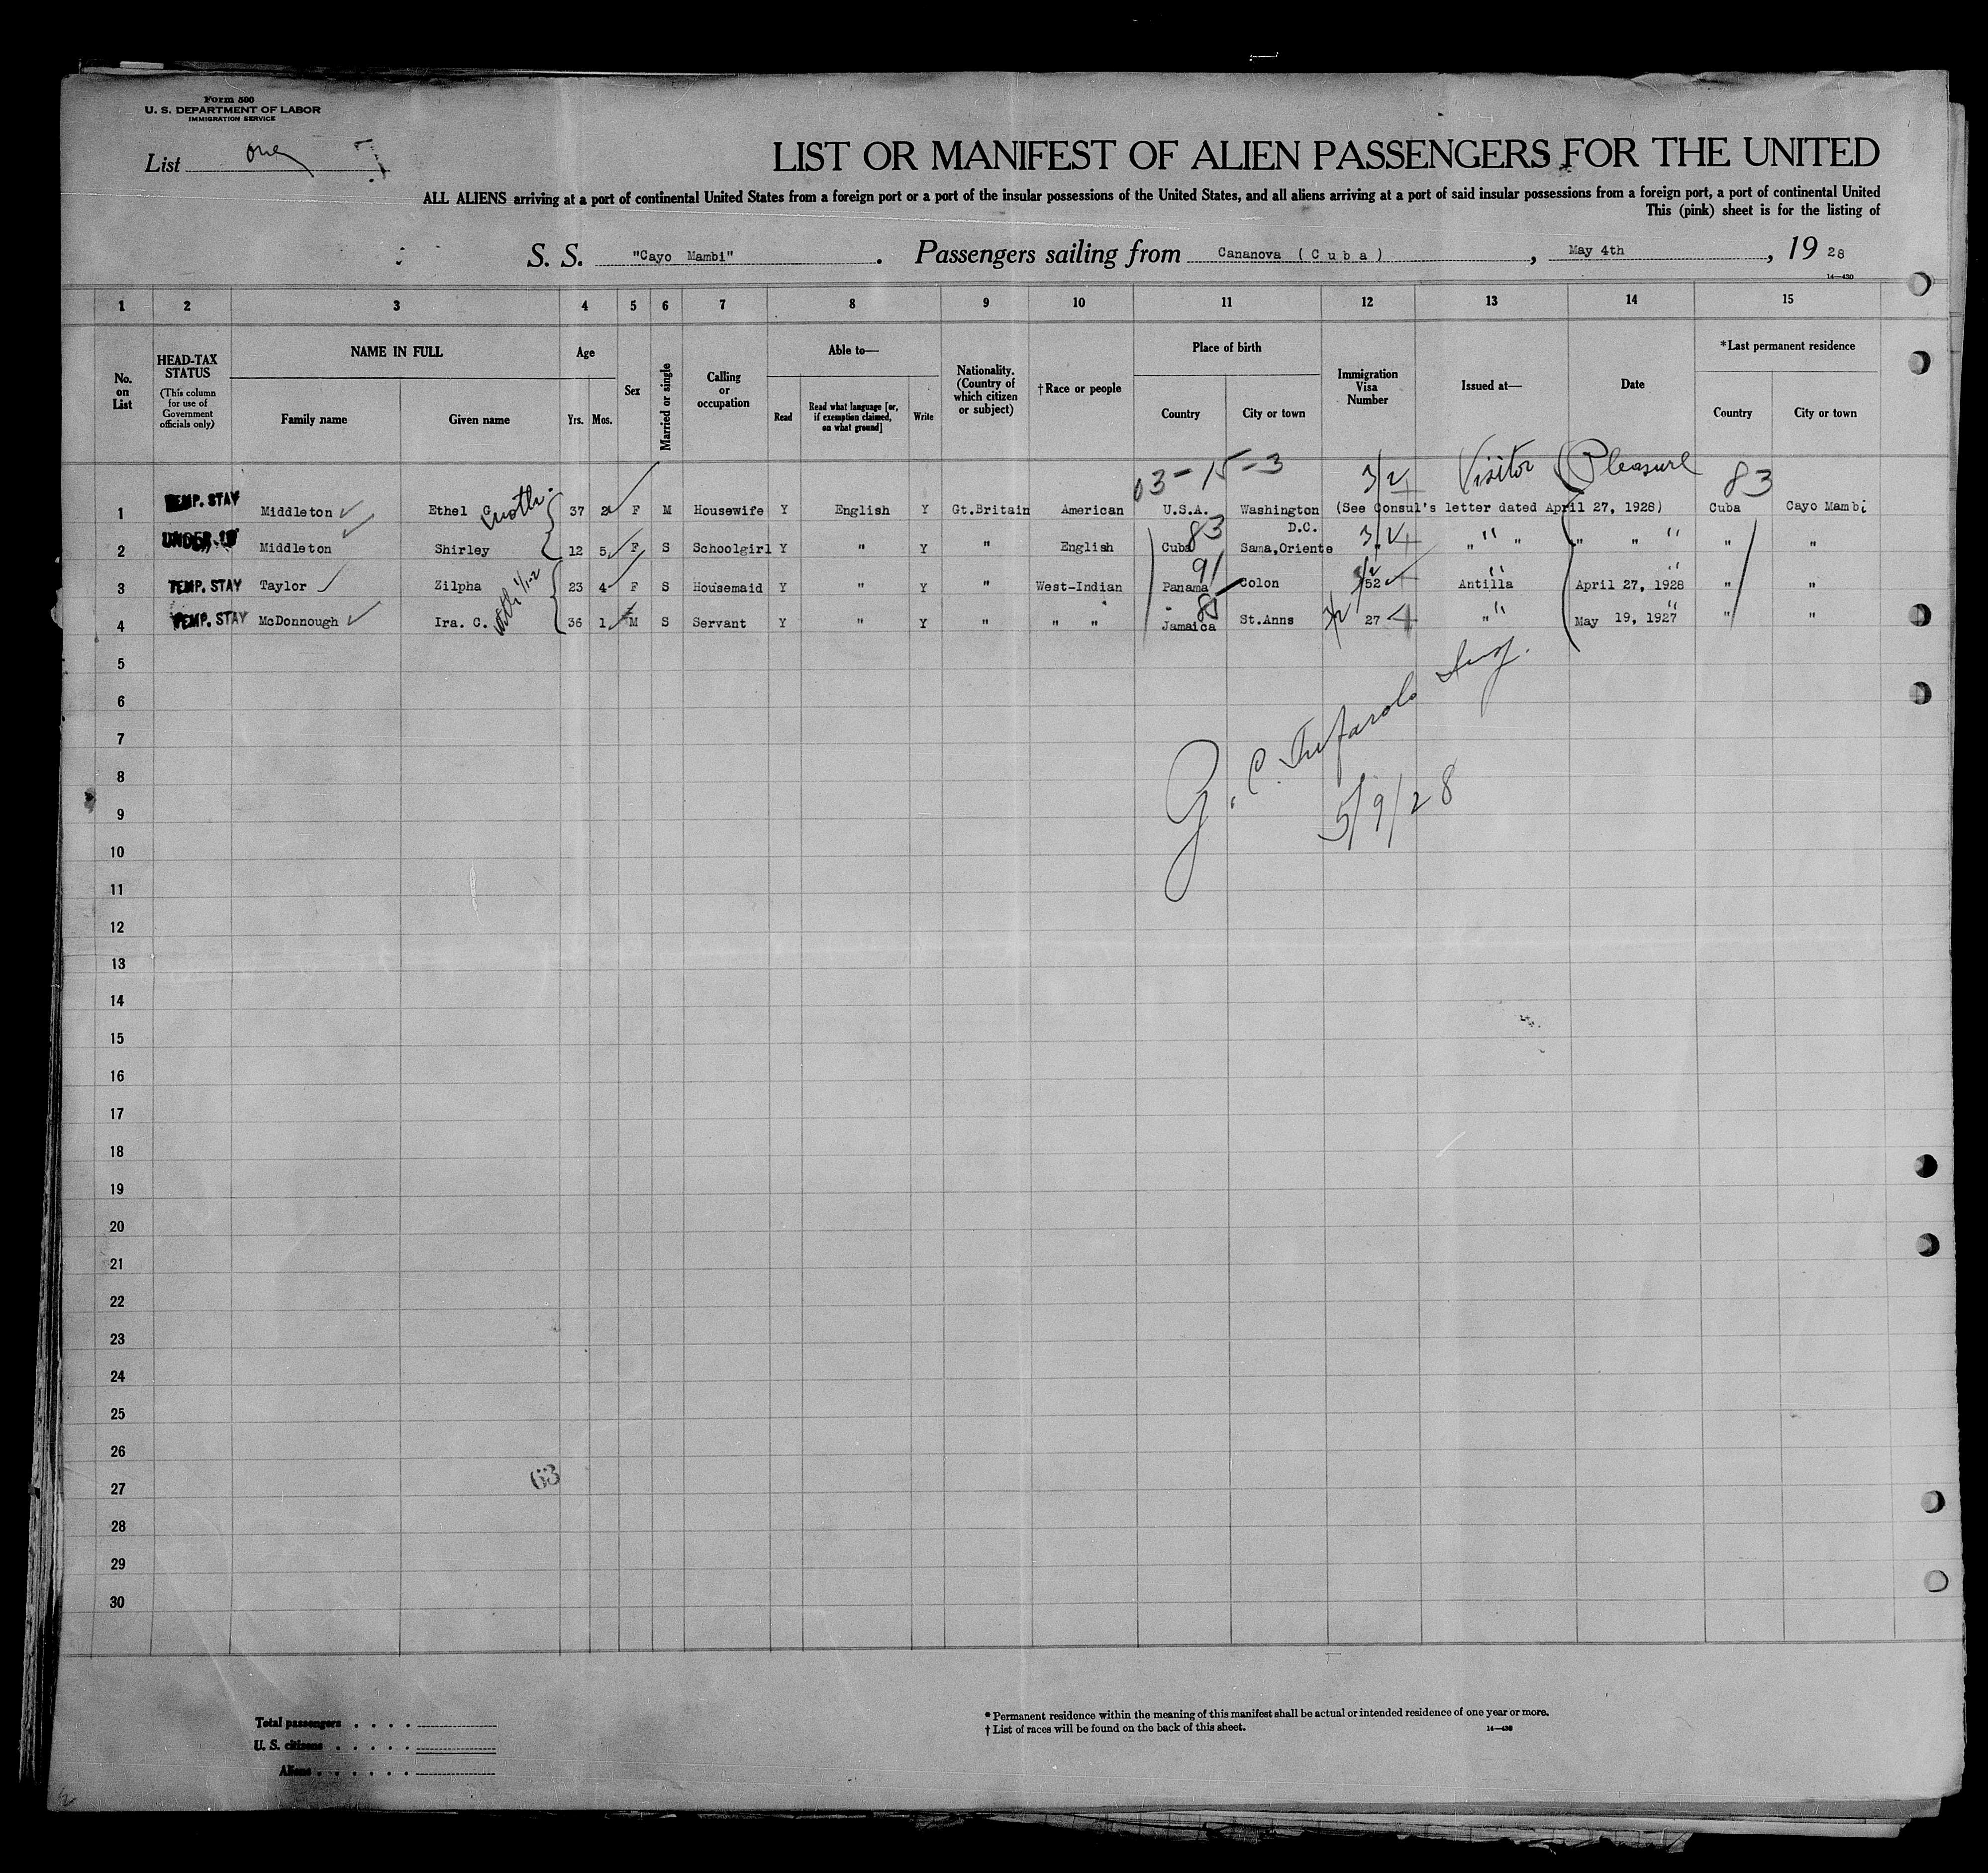 Form 500
U. S. DEPARTMENT OF LABOR
IMMIGRATION SERVICE
List one
LIST OR MANIFEST OF ALIEN PASSENGERS FOR THE UNITED
ALL ALIENS arriving at a port of continental United States from a foreign port or a port of the insular possessions of the United States, and all aliens arriving at a port of said insular possessions from a foreign port, a port of continental United
This (pink) sheet is for the listing of
S. S. "Cayo Mambi". Passengers sailing from Cananova (Cuba), May 4th, 1928
14—430
1 2 3 4 5 6 7 8 9 10 11 12 13 14 15
No. on List
HEAD-TAX STATUS (This column for use of Government officials only)
NAME IN FULL
Family name Given name
Age
Yrs. Mos.
Sex
Married or single
Calling or occupation
Able to—
Read
Read what language [or, if exemption claimed, on what ground]
Write
Nationality. (Country of which citizen or subject)
†Race or people
Place of birth
Country City or town
Immigration Visa Number
Issued at—
Date
*Last permanent residence
Country City or town
03-15-3 3/2 Visitor Pleasure 83
1 TEMP. STAY Middleton Ethel G. 37 2 F M Housewife Y English Y Gt.Britain American U.S.A. Washington D.C. (See Consul's letter dated April 27, 1928) Cuba Cayo Mambi
2 UNDER 16 Middleton Shirley 12 5 F S Schoolgirl Y " Y " English Cuba 83 Sama,Oriente 3/2 " " " " " " " " "
3 TEMP. STAY Taylor Zilpha 23 4 F S Housemaid Y " Y " West-Indian Panama 91 Colon 52 Antilla April 27, 1928 " "
4 TEMP. STAY McDonnough Ira. C. 36 1 M S Servant Y " Y " " " Jamaica 85 St.Anns 3/2 27 " " May 19, 1927 " "
5
6
7
8
9
5/9/28
10
11
12
13
14
15
16
17
18
19
20
21
22
23
24
25
26
63
27
28
29
30
Total passengers . . . .
U. S. citizens . . . . .
Aliens . . . . . .
* Permanent residence within the meaning of this manifest shall be actual or intended residence of one year or more.
† List of races will be found on the back of this sheet. 14—430